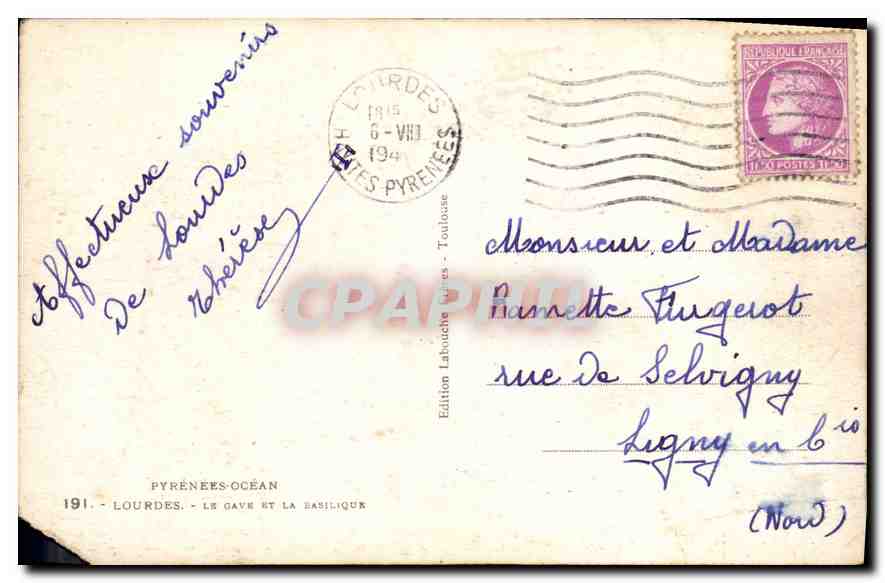 Affectueux souvenirs
de Lourdes
Thérèse
LOURDES
18 15
6-VIII
194
HTES-PYRENEES
REPUBLIQUE FRANÇAISE
POSTES
Monsieur et Madame
Ramette Flugerot
rue de Selvigny
Ligny en Cis
(Nord)
Edition Labouche Frères - Toulouse
CPAPHIL
PYRÉNÉES-OCÉAN
191. - LOURDES. - LE GAVE ET LA BASILIQUE